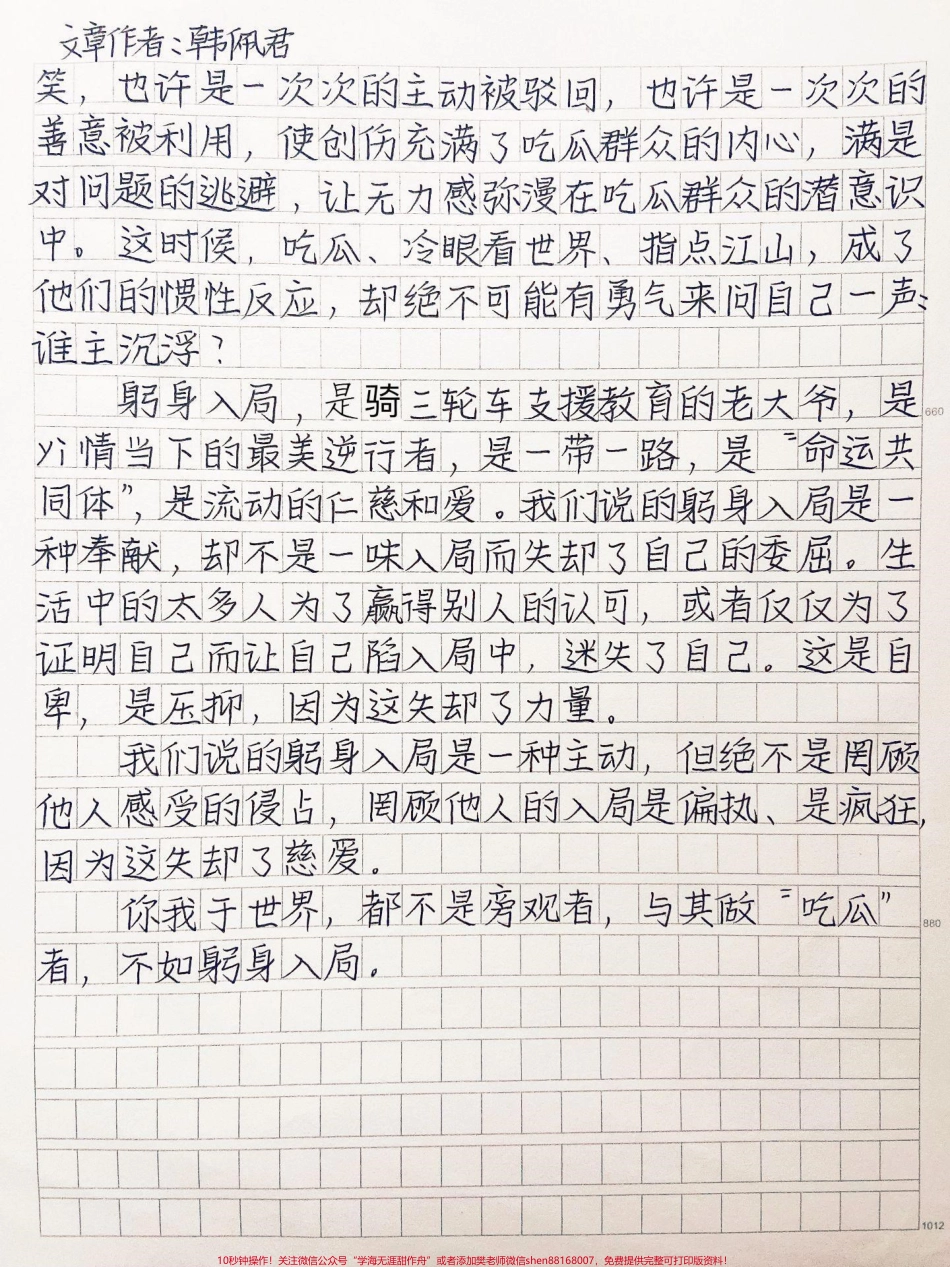 文章作者：韩佩君
笑，也许是一次次的主动被驳回，也许是一次次的
善意被利用，使创伤充满了吃瓜群众的内心，满是
对问题的逃避，让无力感弥漫在吃瓜群众的潜意识
中。这时候，吃瓜、冷眼看世界、指点江山，成了
他们的惯性反应，却绝不可能有勇气来问自己一声：
谁主沉浮？
躬身入局，是骑三轮车支援教育的老大爷，是
660
yi情当下的最美逆行者，是一带一路，是“命运共
同体”，是流动的仁慈和爱。我们说的躬身入局是一
种奉献，却不是一味入局而失却了自己的委屈。生
活中的太多人为了赢得别人的认可，或者仅仅为了
证明自己而让自己陷入局中，迷失了自己。这是自
卑，是压抑，因为这失却了力量。
我们说的躬身入局是一种主动，但绝不是罔顾
他人感受的侵占，罔顾他人的入局是偏执、是疯狂，
因为这失却了慈爱。
你我于世界，都不是旁观者，与其做“吃瓜”
880
者，不如躬身入局。
1012
10秒钟操作！关注微信公众号“学海无涯甜作舟”或者添加樊老师微信shen88168007，免费提供完整可打印版资料！